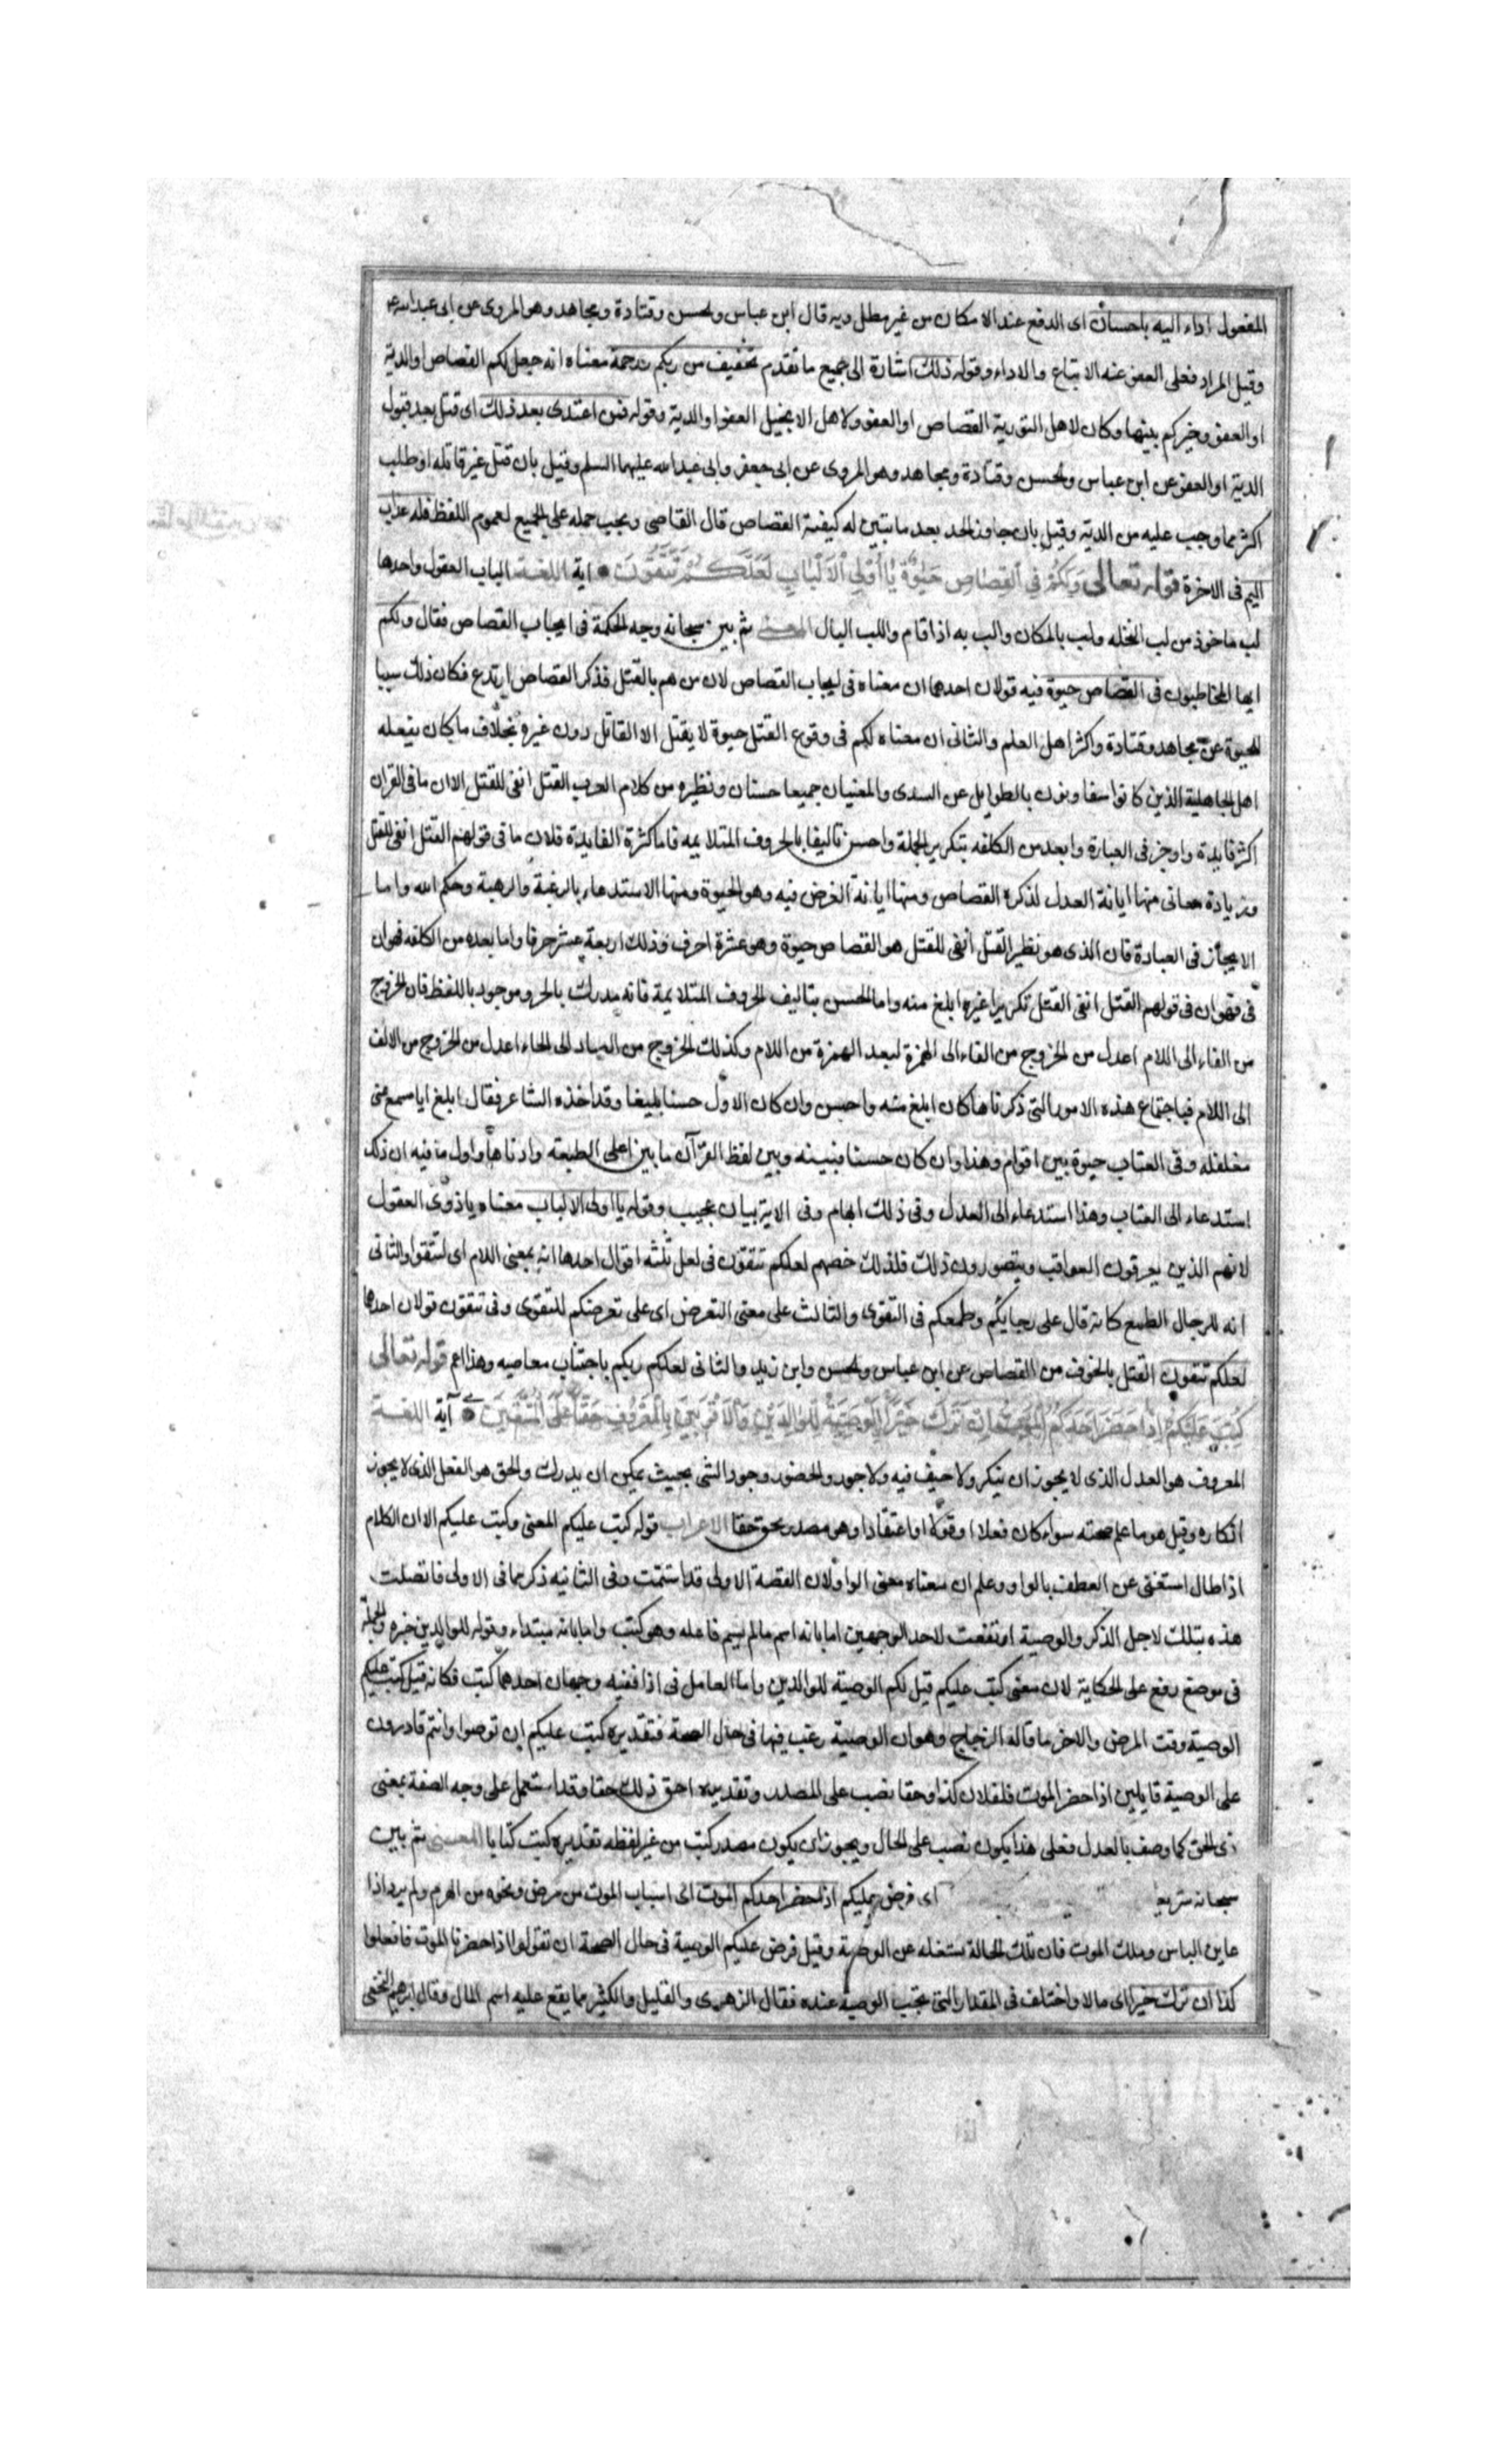 المقعول اداء اليه باحسان اى الدفع عند الامكان من غير مطل وبه قال ابن عباس والحسن وقتادة ومجاهد وهو المروى عن ابى عبدالله ع
وقيل المراد فعلى المعفو عنه الاتباع والاداء وقوله ذلك اشارة الى جميع ما تقدم تخفيف من ربكم ورحمة معناه انه جعل لكم القصاص او الدية
او العفو وخيركم بينها وكان لاهل التورية القصاص او العفو ولاهل الانجيل العفو او الدية وقوله فمن اعتدى بعد ذلك اى قتل بعد قبول
الدية او العفو عن ابن عباس والحسن وقتادة ومجاهد وهو المروى عن ابى جعفر وابى عبدالله عليهما السلم وقيل بان قتل غير قاتله او طلب
اكثر مما وجب عليه من الدية وقيل بان جاوز الحد بعد ما بين له كيفية القصاص قال القاضى ويجب حمله على الجميع لعموم اللفظ فله عذاب
اليم فى الاخرة قوله تعالى وَلَكُمْ فِي الْقِصَاصِ حَيٰوةٌ يَا أُوْلِي الْأَلْبَابِ لَعَلَّكُمْ تَتَّقُونَ اية اللغة الباب العقول واحدها
لب ماخوذ من لب النخله ولب بالمكان والب به اذا قام واللب البال المعنى ثم بين سبحانه وجه الحكمة فى ايجاب القصاص فقال ولكم
ايها المخاطبون فى القصاص حيوة فيه قولان احدهما ان معناه فى ايجاب القصاص لان من هم بالقتل فذكر القصاص ارتدع فكان ذلك سببا
للحيوة عن مجاهد وقتادة واكثر اهل العلم والثانى ان معناه لكم فى وقوع القتل حيوة لا يقتل الا القاتل دون غيره بخلاف ما كان يفعله
اهل الجاهلية الذين كانوا يتفانون بالطوايل عن السدى والمعنيان جميعا حسنان ونظيره من كلام العرب القتل انفى للقتل الا ان ما فى القران
اكثر فايدة واوجز فى العبارة وابعد من الكلفه بتكرير الجملة واحسن تاليفا بالحروف المتلايمه فاما كثرة الفايدة فلان ما فى قولهم القتل انفى للقتل
وزيادة معانى منها ابانة العدل لذكره القصاص ومنها ابانة الغرض فيه وهو الحيوة ومنها الاستدعاء بالرغبة والرهبة وحكم الله واما
الايجاز فى العبادة فان الذى هو نظير القتل انفى للقتل هو القصاص حيوة وهو عشرة احرف وذلك اربعة عشر حرفا واما بعده من الكلفه فهو ان
فى فهو ان فى قولهم القتل انفى القتل تكريرا غيره ابلغ منه واما الحسن بتاليف الحروف المتلايمة فانه مدرك بالحر وموجود باللفظ فان الخروج
من الفاء الى اللام اعدل من الخروج من الفاء الى الهمزة لبعد الهمزة من اللام وكذلك الخروج من الصاد الى الحاء اعدل من الخروج من الالف
الى اللام فباجتماع هذه الامور التى ذكرناها كان ابلغ منه واحسن وان كان الاول حسنا بليغا وقد اخذه الشاعر فقال ابلغ ابا مسمع عنى
مغلغلة وفى العتاب حيوة بين اقوام وهذا وان كان حسنا فبينه وبين لفظ القرآن ما بين اعلى الطبقة وادناها واول ما فيه ان ذلك
استدعاء الى العتاب وهذا استدعاء الى العدل وفى ذلك ابهام وفى الاية بيان عجيب وقوله يا اولى الالباب معناه يا ذوى العقول
لانهم الذين يعرفون العواقب ويتصورون ذلك فلذلك خصهم لعلكم تتقون فى لعل ثلثه اقوال احدها انه بمعنى اللام اى لتتقوا والثانى
انه للرجال الطمع كانه قال على رجايكم وطمعكم فى التقوى والثالث على معنى التعرض اى على تعرضكم للتقوى وفى تتقون قولان احدها
لعلكم تتقون القتل بالخوف من القصاص عن ابن عباس والحسن وابن زيد والثانى لعلكم ربكم باجتناب معاصيه وهذا اعم قوله تعالى
كُتِبَ عَلَيْكُمْ إِذَا حَضَرَ أَحَدَكُمُ الْمَوْتُ إِنْ تَرَكَ خَيْرًا الْوَصِيَّةُ لِلْوَالِدَيْنِ وَالْأَقْرَبِينَ بِالْمَعْرُوفِ حَقًّا عَلَى الْمُتَّقِينَ آية اللغة
المعروف هو العدل الذى لا يجوز ان ينكر ولا حيف فيه ولا جور والحضور وجود الشى بحيث يمكن ان يدرك والحق هو الفعل الذى لا يجوز
انكاره وقيل هو ما علم صحته سواء كان فعلا او قولا او اعتقادا وهو مصدر يحق حقا الاعراب قوله كتب عليكم المعنى وكتب عليكم الا ان الكلام
اذا طال استغنى عن العطف بالواو وعلم ان معناه معنى الواو لان القصة الاولى قد استتمت وفى الثانيه ذكر مما فى الاولى فاتصلت
هذه بتلك لاجل الذكر والوصية ارتفعت لاحد الوجهين اما بانه اسم ما لم يسم فاعله وهو كتب واما بانه مبتداء وقوله للوالدين خبره والجملة
فى موضع رفع على الحكاية لان معنى كتب عليكم قيل لكم الوصية للوالدين واما العامل فى اذا ففيه وجهان احدهما كتب فكانه قيل كتب عليكم
الوصية وقت المرض والاخر ما قاله الزجاج وهو ان الوصية رغب فيها فى حال الصحة فتقديره كتب عليكم ان توصوا وانتم قادرون
على الوصية قايلين اذا حضر الموت فلفلان كذا وحقا نصب على المصدر وتقديره احق ذلك حقا وقد استعمل على وجه الصفة بمعنى
ذى الحق كما وصف بالعدل فعلى هذا يكون نصب على الحال ويجوز ان يكون مصدر كتب من غير لفظه تقديره كتب كتابا المعنى ثم بين
سبحانه شريعة اى فرض عليكم اذا حضر احدكم الموت اى اسباب الموت من مرض ونحوه من الهرم ولم يرد اذا
عاين الباس وملك الموت فان تلك الحالة تشغله عن الوصية وقيل فرض عليكم الوصية فى حال الصحة ان تقولوا اذا حضرنا الموت فافعلوا
كذا ان ترك خيرا اى مالا واختلف فى المقدار التى تجب الوصية عنده فقال الزهرى والقليل والكثير مما يقع عليه اسم المال وقال ابرهيم النخعى